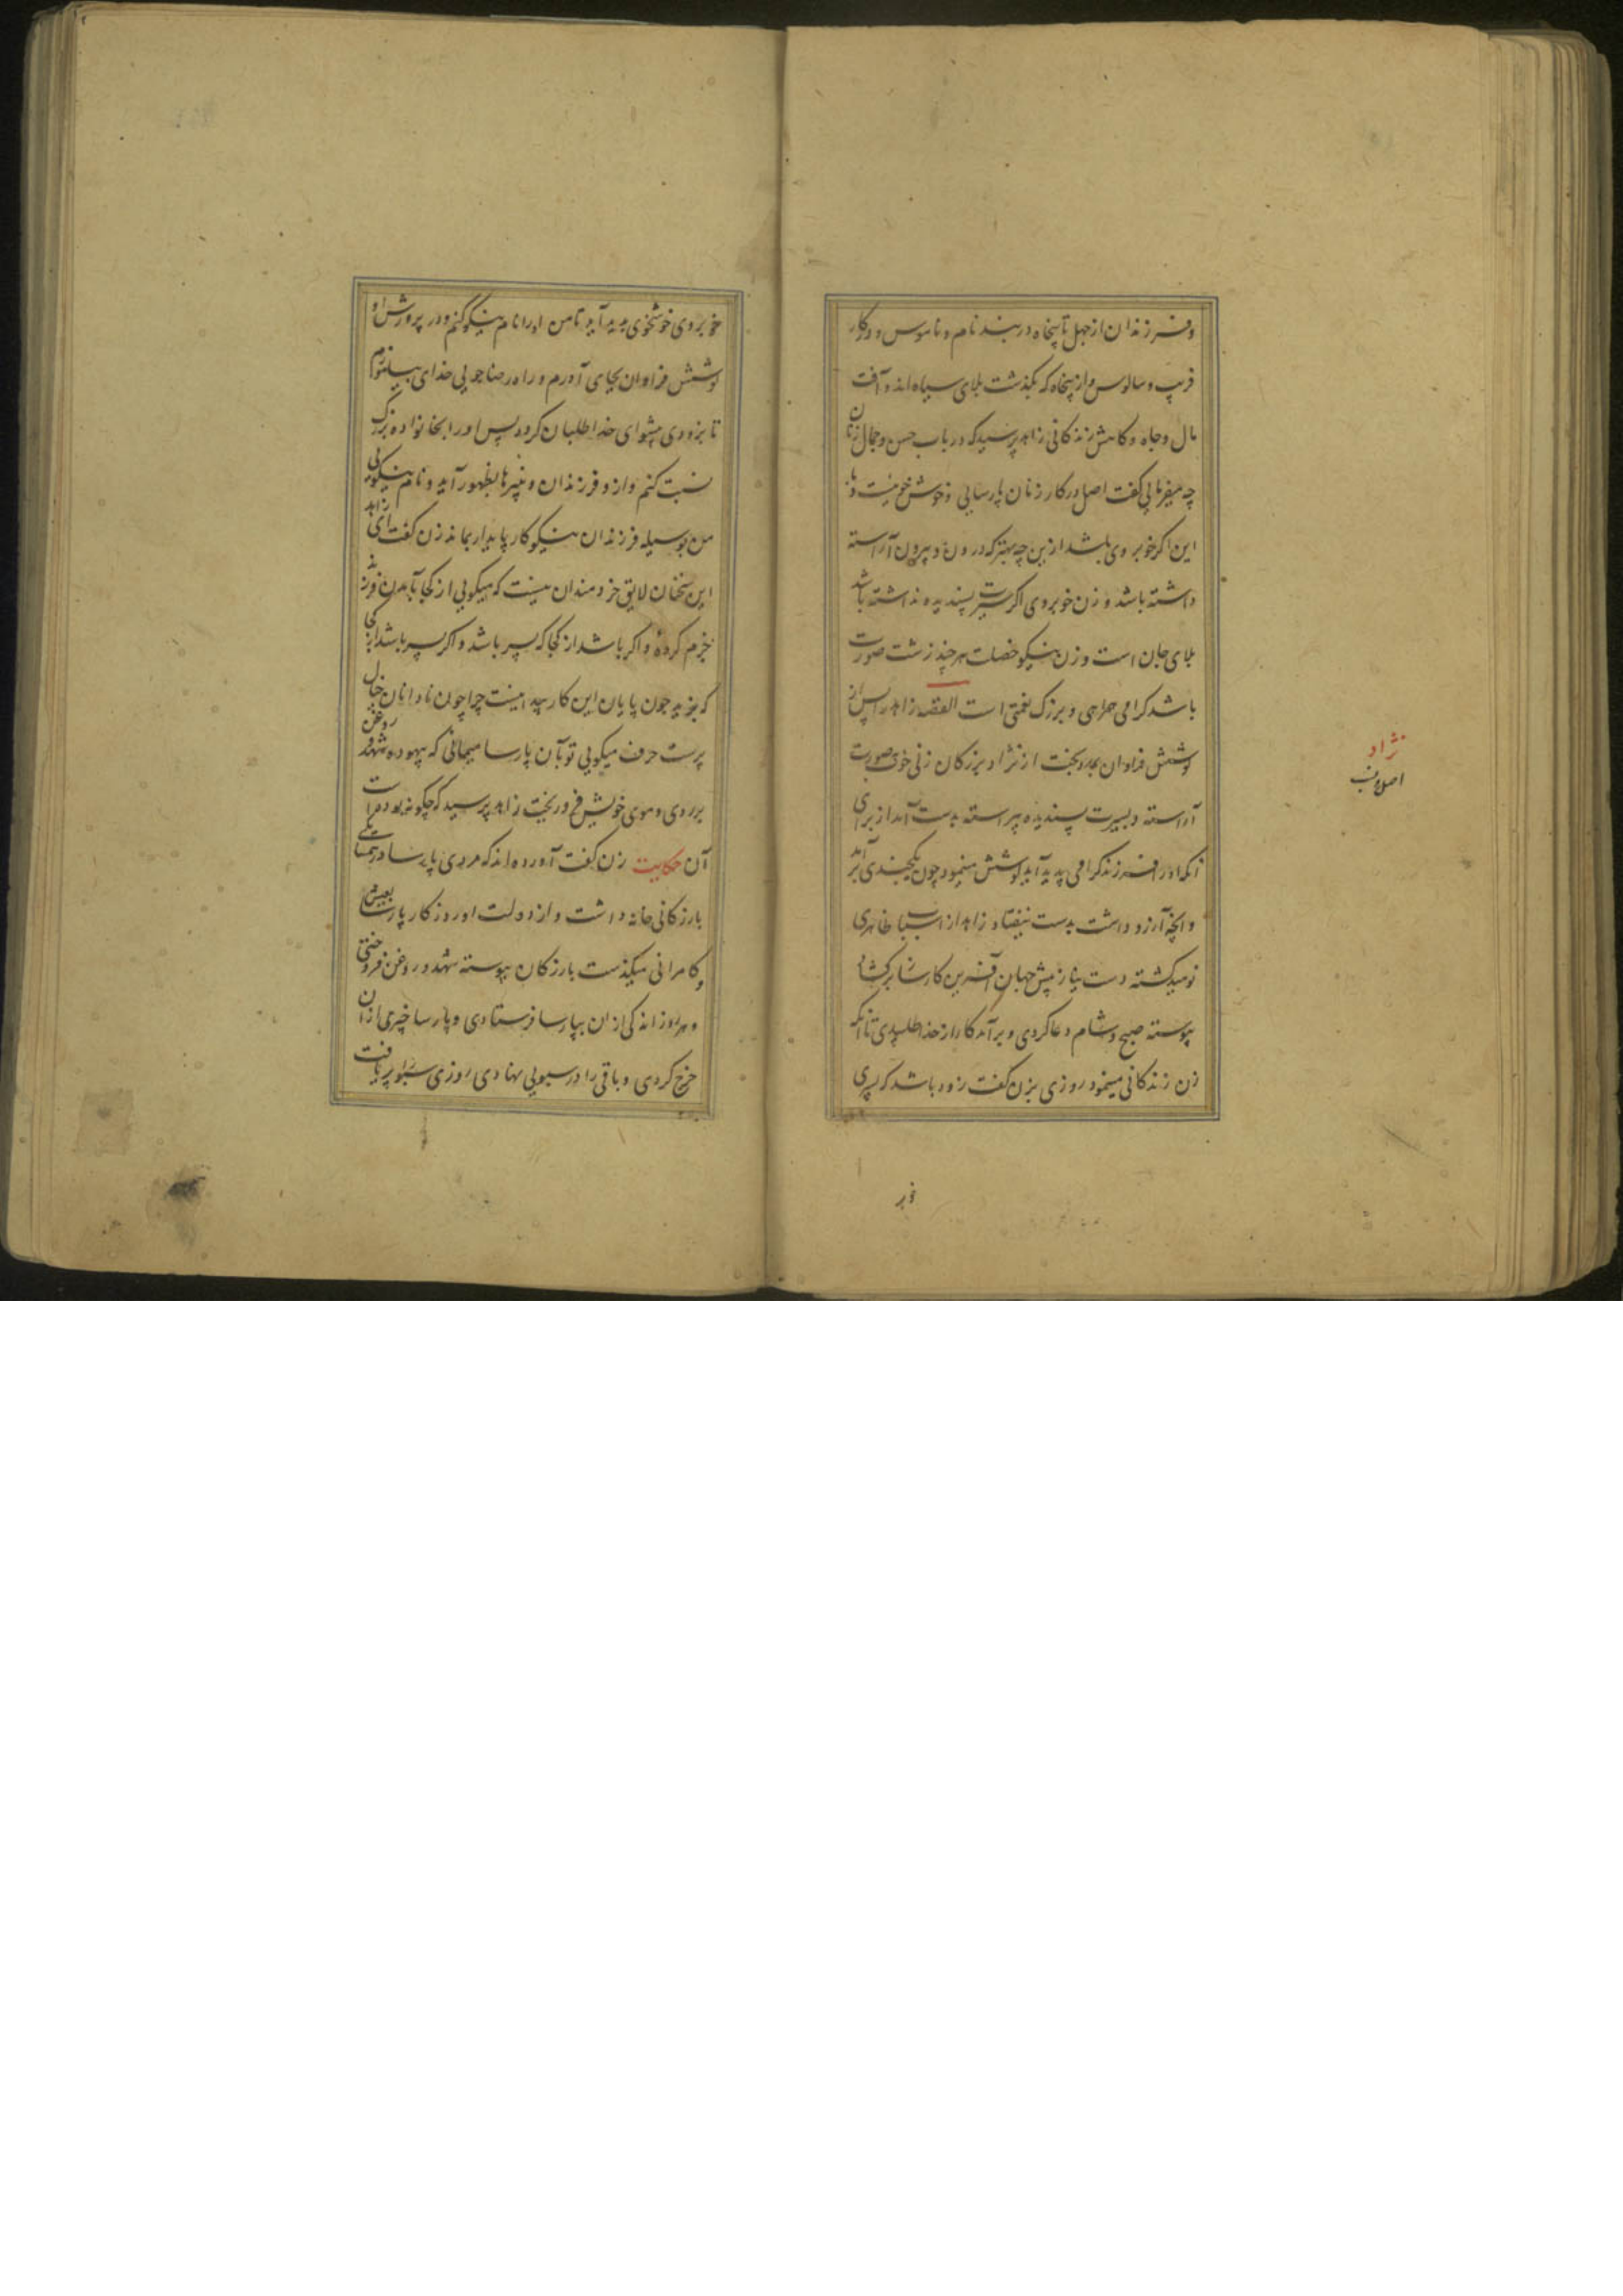 وفرزندان از چهل تا پنجاه در بند نام و ناموس و در کار
فریب و سالوس و از پنجاه که بگذشت بلای سیاه اند و آفت
مال و جاه و کاهش زندگانی زاهد پرسید که در باب حسن و جمال زنان
چه میفرمایی گفت اصل در کار زنان پارسایی و خوش خوییست و با
این اگر خوبروی باشد ازین چه بهتر که درون و بیرون آراسته
داشته باشد و زن خوبروی اگر سیرت پسندیده نداشته باشد
بلای جان است و زن نیکو خصلت هر چند زشت صورت
باشد گرامی همراهی و بزرگ نعمتی است القصه زاهد را پس از
کوشش فراوان بمدد بخت از نژاد بزرگان زنی خوب صورت
آراسته و بسیرت پسندیده پیراسته بدست آمد از برای
آنکه او را فرزند گرامی پدید آید کوشش مینمود چون یکچندی برآمد
و آنچه آرزو داشت بدست نیفتاد زاهد از اسباب ظاهری
نومید گشته دست نیاز پیش جهان آفرین کارساز برگشاد
پیوسته صبح و شام دعا کردی و برآمد کار از خدا طلبیدی تا آنکه
زن زندگانی مینمود روزی بزن گفت زود باشد که پسری
نژاد
اصل و نسب
خوبر
خوبروی خوشخوی پدید آید تا من او را نام نیکو کنم و در پرورش او
کوشش فراوان بجای آورم و راه رضاجویی خدای بیاموزم
تا بزودی پیشوای خدا طلبان گردد پس او را بخانواده بزرگ
نسبت کنم و ازو فرزندان و نبیرها بظهور آید و نام نیکویی
من بوسیله فرزندان نیکوکار پایدار بماند زن گفت ای زاهد
این سخنان لایق خردمندان نیست که میگویی از کجا بآمدن فرزند
جزم کرده و اگر باشد از کجا که پسر باشد و اگر پسر باشد از کجا
که بزید چون پایان این کار پیدا نیست چرا چون نادانان خیال
پرست حرف میگویی تو بآن پارسا میمانی که بیهوده شهد و روغن
بر روی و موی خویش فرو ریخت زاهد پرسید که چگونه بوده است
آن حکایت زن گفت آورده اند که مردی پارسا در همسایگی
بازرگانی خانه داشت و از دولت او روزگار پارسا بعیش
و کامرانی میگذشت بازرگان پیوسته شهد و روغن فروختی
و هر روز اندکی از ان بپارسا فرستادی و پارسا چیزی از ان
خرج کردی و باقی را در سبویی نهادی روزی سبو پر یافت